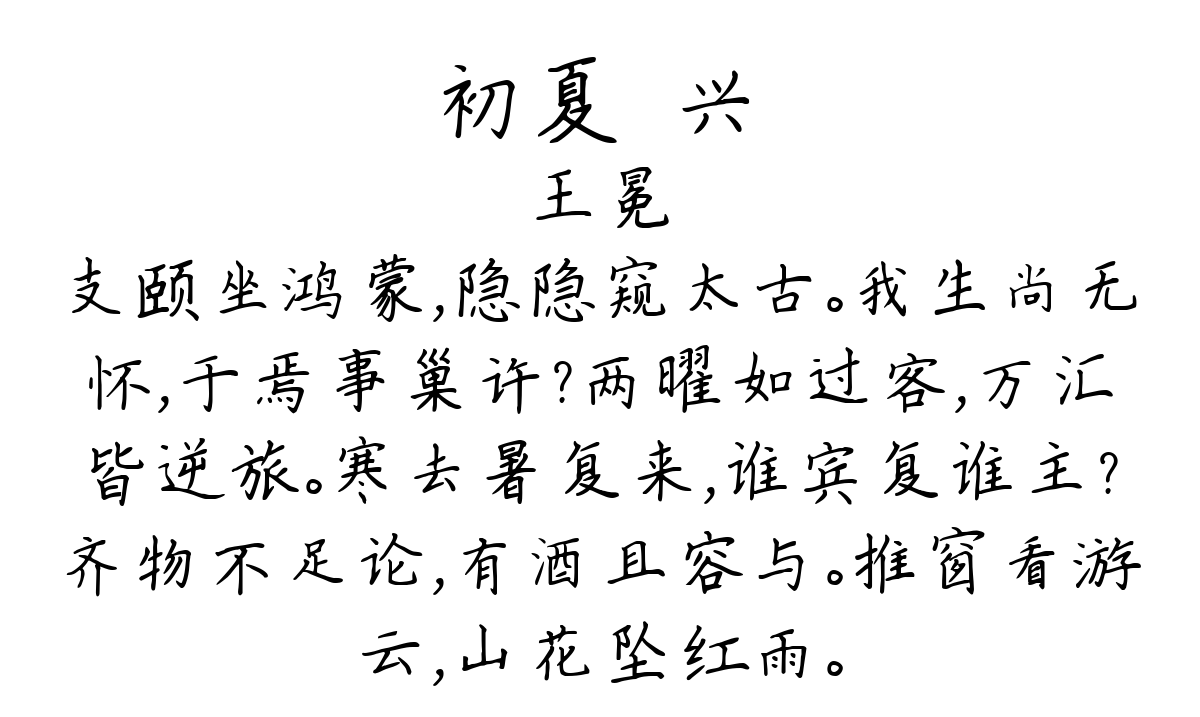 初夏 兴
王冕
支颐坐鸿蒙,隐隐窥太古。我生尚无
怀,于焉事巢许?两曜如过客,万汇
皆逆旅。寒去暑复来,谁宾复谁主?
齐物不足论,有酒且容与。推窗看游
云,山花坠红雨。